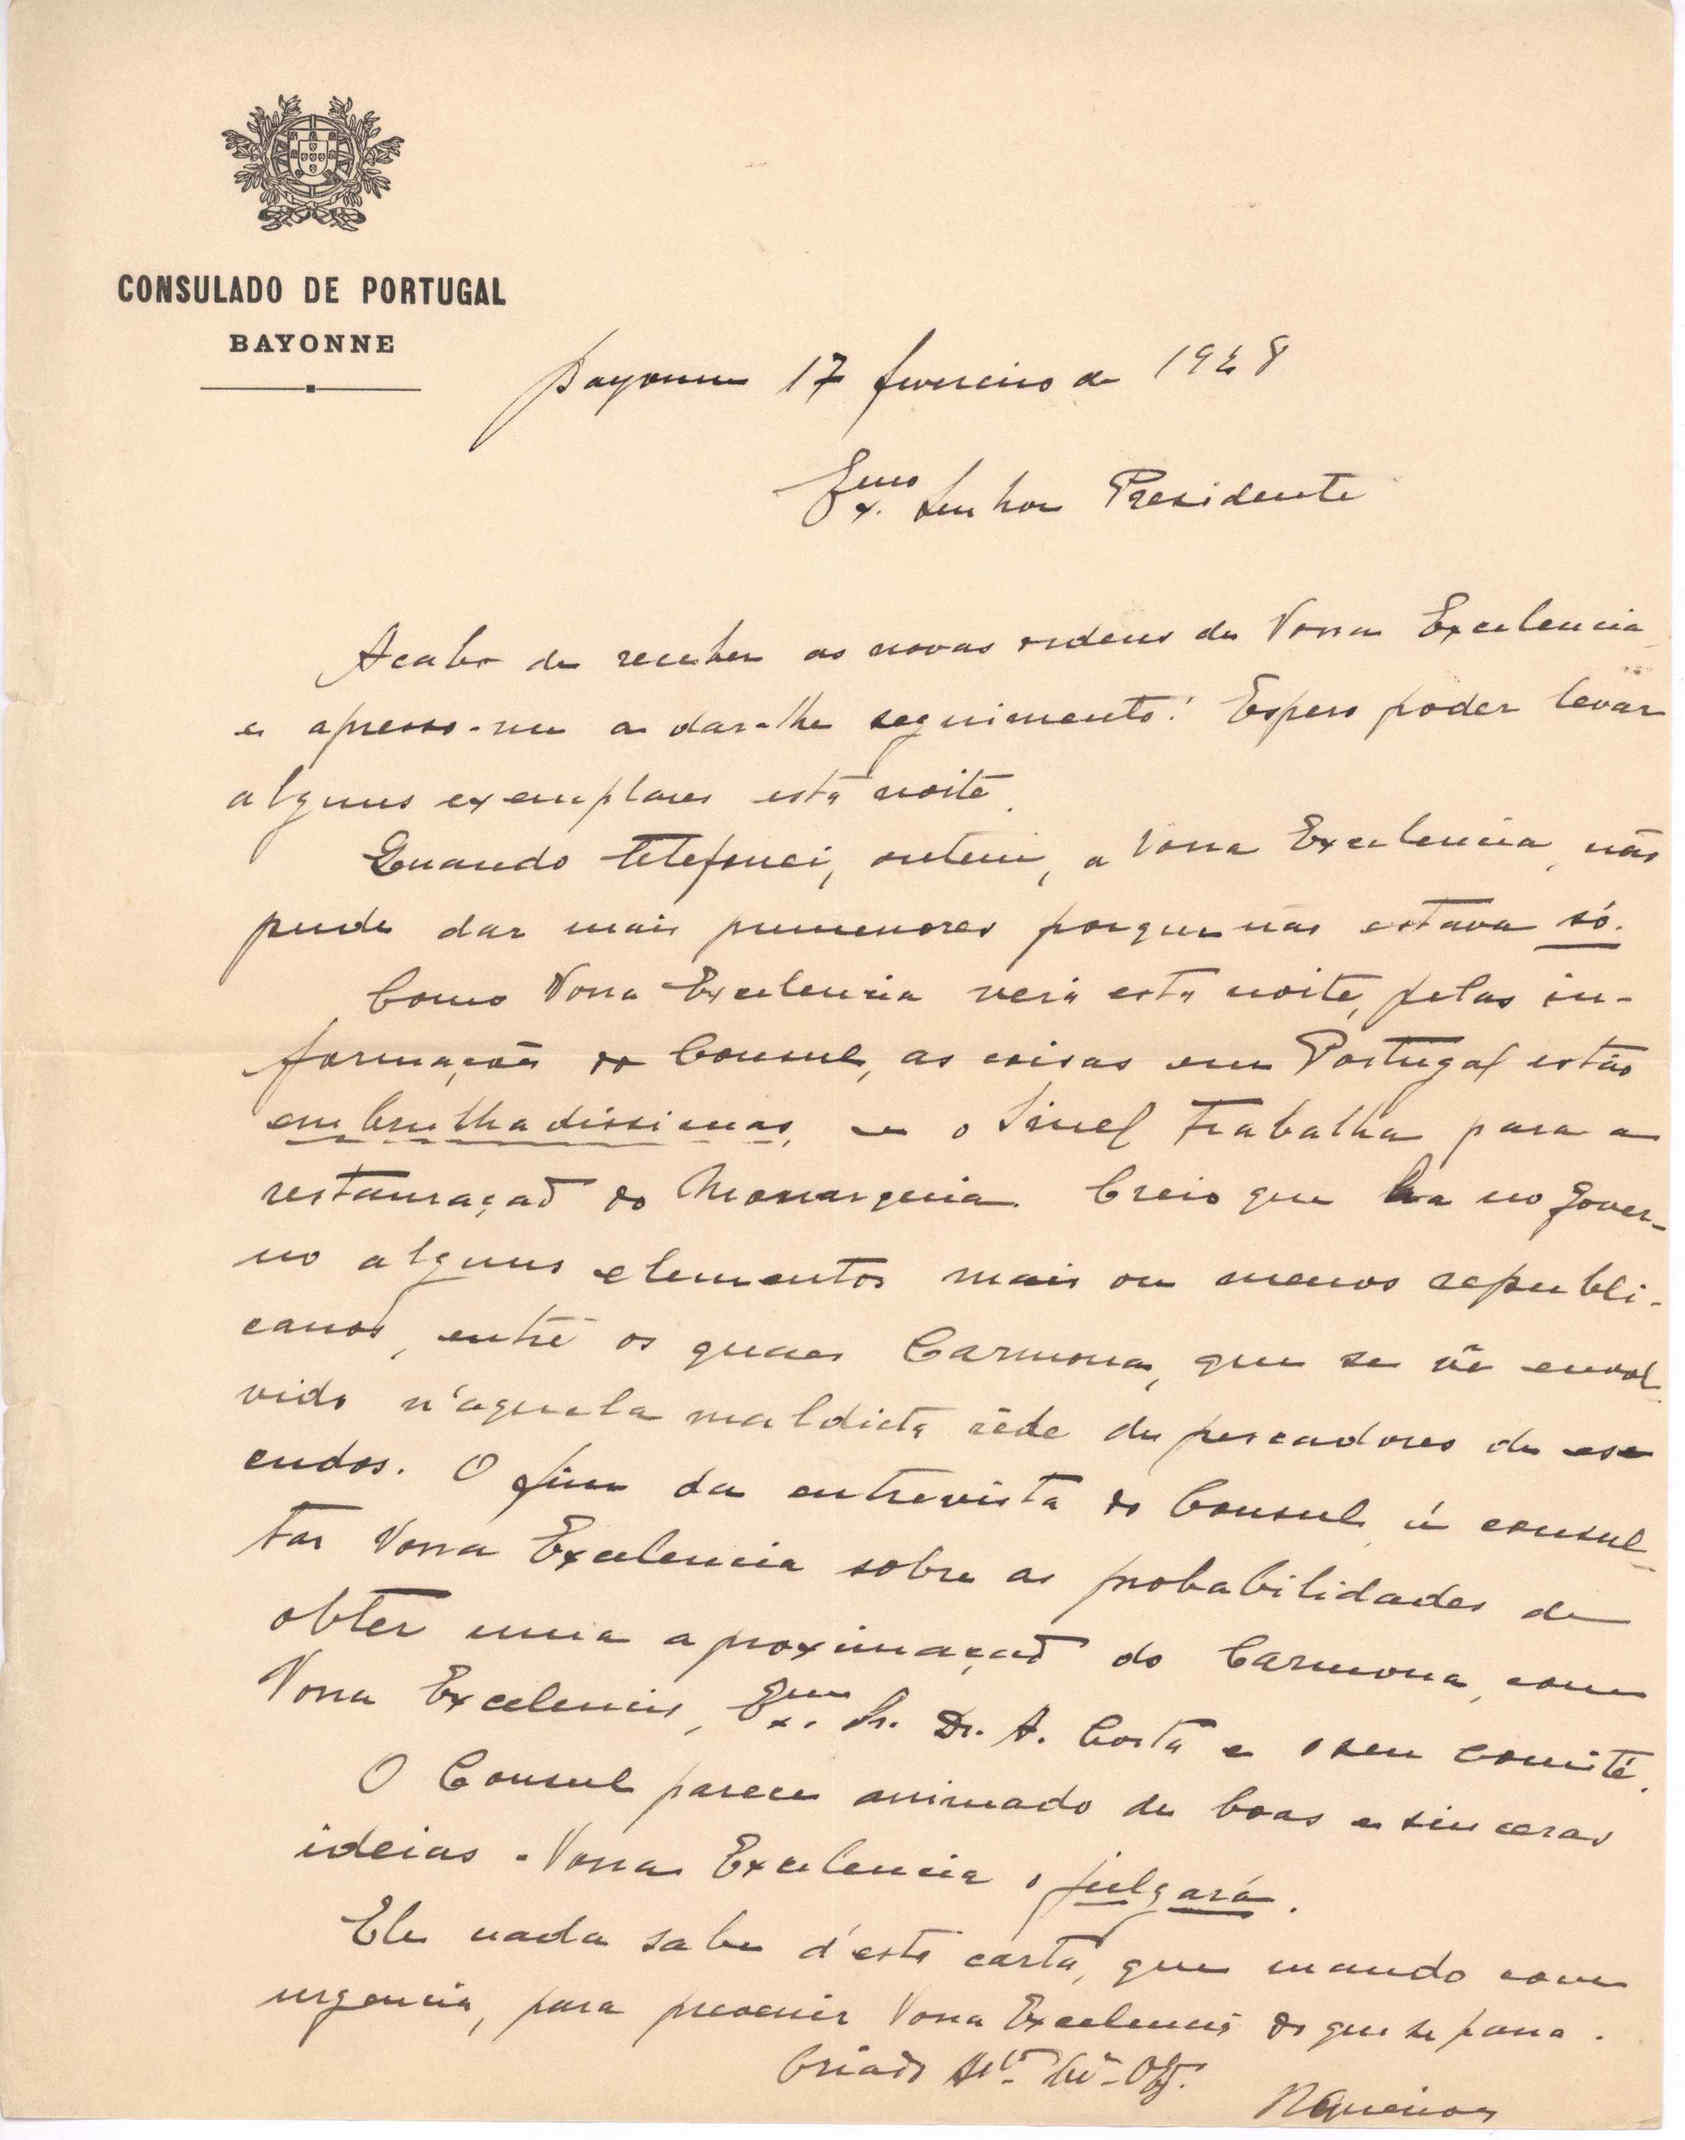 CONSULADO DE PORTUGAL
BAYONNE
Bayonne 17 fevereiro de 1928
Exmo. Senhor Presidente
Acabo de receber as novas ordens de Vossa Excelencia
e apresso-me a dar-lhe seguimento. Espero poder levar
alguns exemplares esta noite.
Quando telefonei, ontem, a Vossa Excelencia, não
pude dar mais pormenores porque não estava só.
Como Vossa Excelencia verá esta noite, pelas in-
formações do Consul, as coisas em Portugal estão
embrulhadissimas, e o Sinel trabalha para a
restauração da Monarquia. Creio que ha no Gover-
no alguns elementos mais ou menos republi-
canos, entre os quaes Carmona, que se vê envol
vido n'aquela maldicta rêde de pescadores de es
cudos. O fim da entrevista do Consul, é consul-
tar Vossa Excelencia sobre as probabilidades de
obter uma aproximação do Carmona, com
Vossa Excelencia, Exmo. Sr. Dr. A. Costa e o seu comité.
O Consul parece animado de boas e sinceras
ideias. Vossa Excelencia o julgará.
Ele nada sabe d'esta carta, que mando com
urgencia, para prevenir Vossa Excelencia do que se passa.
Criado